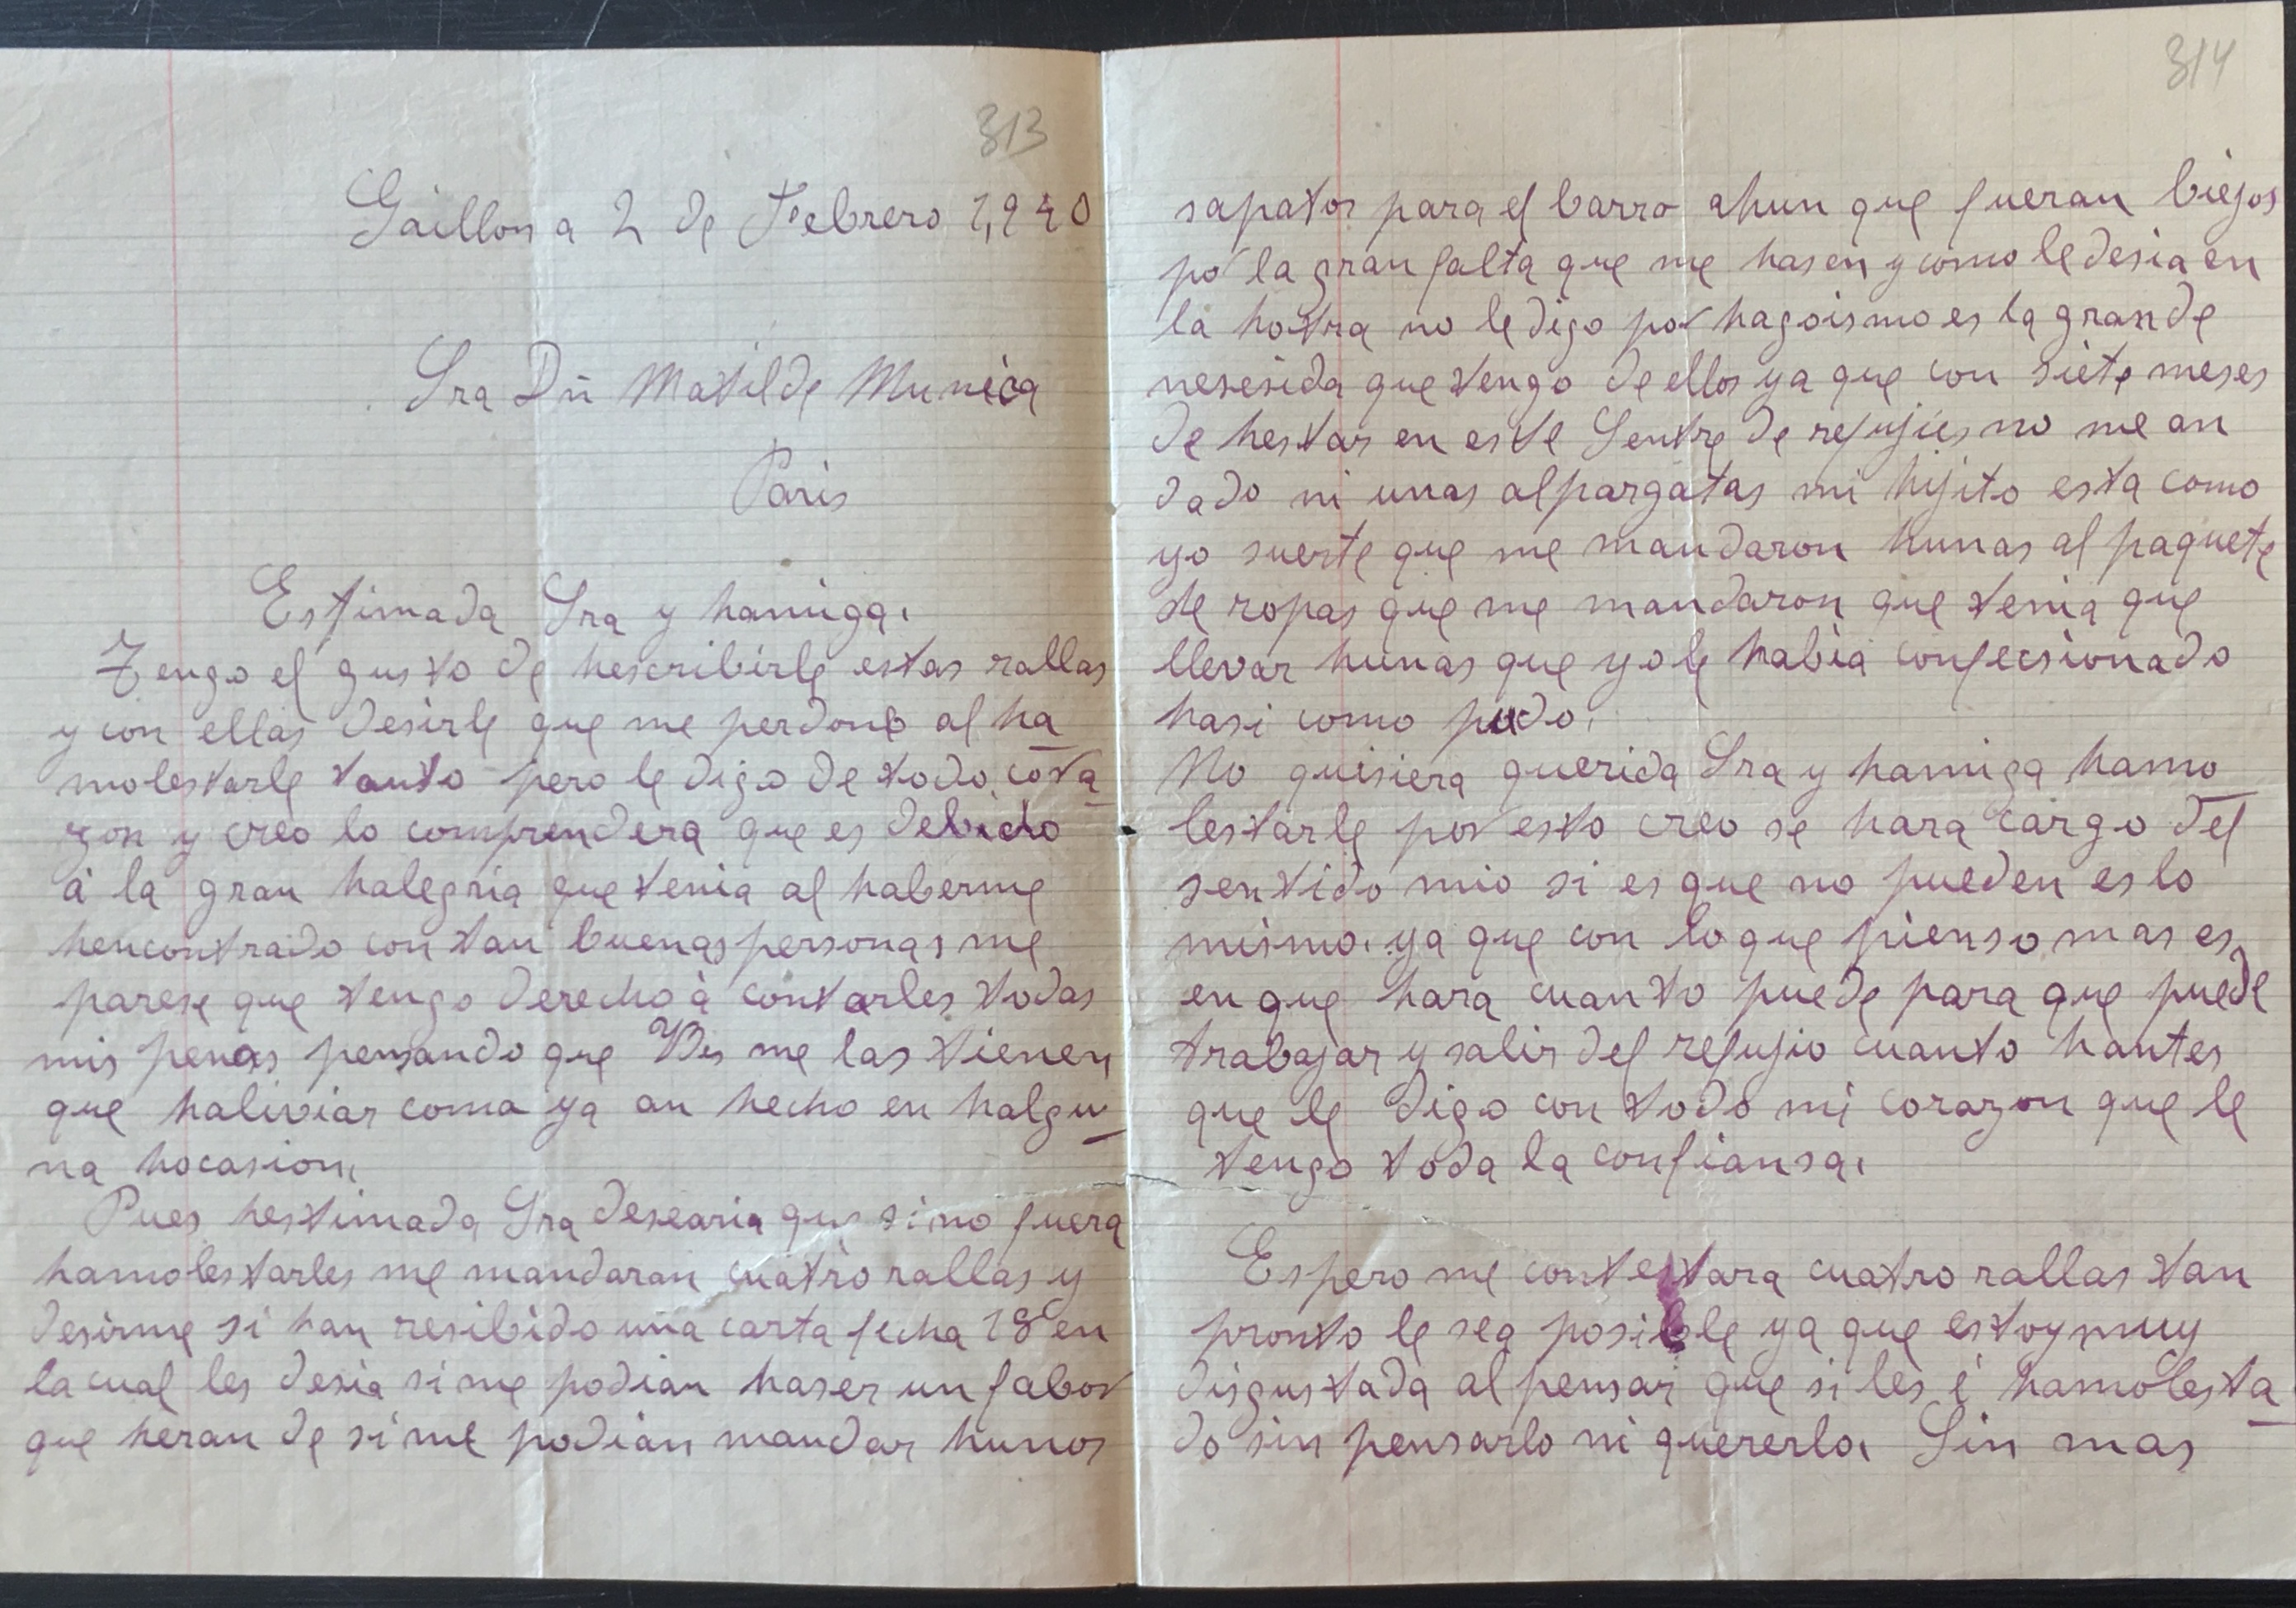 313
Gaillon a 2 de Febrero 1,940
Sra Dñ Matilde Muniça
Paris
Estimada Sra y hamiga.
Tengo el gusto de hescribirle estas rallas
y con ellas desirle que me perdone al ha
molestarle tanto pero le digo de todo cora
zon y creo lo comprendera que es debido
á la gran halegria que tenia al haberme
hencontrado con tan buenas personas me
parese que tengo derecho à contarles todas
mis penas pensando que Vds me las tienen
que haliviar coma ya an hecho en halgu
na hocasion.
Pues hestimada Sra desearia que si no fuera
hamolestarles me mandaran cuatro rallas y
desirme si han resibido una carta fecha 18 en
la cual les desia si me podian haser un fabor
que heran de si me podian mandar hunos
314
sapatos para el barro ahun que fueran biejos
por la gran falta que me hasen y como le desia en
la hotra no le digo por hagoismo es la grande
nesesida que tengo de ellos ya que con siete meses
de hestar en este Sentre de refujies no me an
dado ni unas alpargatas mi hijito esta como
yo suerte que me mandaron hunas al paquete
de ropas que me mandaron que tenia que
llevar hunas que yo le habia confecsionado
hasi como pudo.
No quisiera querida Sra y hamiga hamo
lestarle por esto creo se hara cargo del
sentido mio si es que no pueden es lo
mismo. ya que con lo que pienso mas es
en que hara cuanto puede para que puede
trabajar y salir del refujio cuanto hantes
que le digo con todo mi corazon que le
tengo toda la confiansa.
Espero me contestara cuatro rallas tan
pronto le sea posible ya que estoy muy
disgustada al pensar que si les é hamolesta
do sin pensarlo ni quererlo. Sin mas